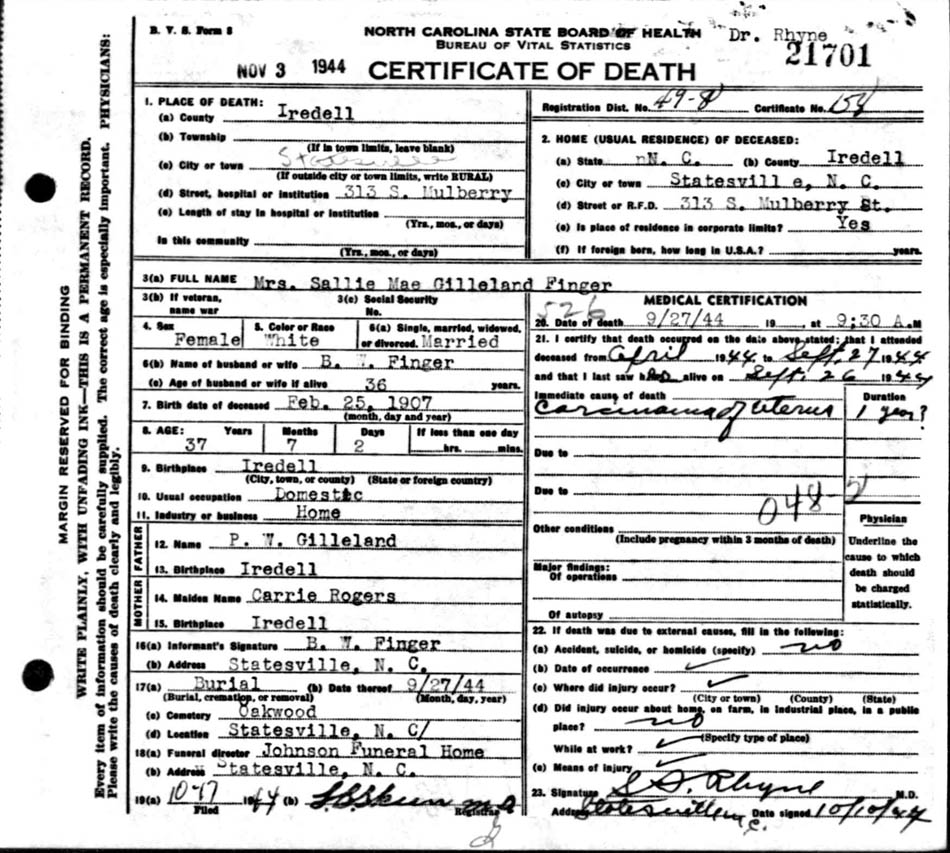 B. V. S. Form 8
NORTH CAROLINA STATE BOARD OF HEALTH
BUREAU OF VITAL STATISTICS
Dr. Rhyne
21701
NOV 3 1944
CERTIFICATE OF DEATH
MARGIN RESERVED FOR BINDING
WRITE PLAINLY, WITH UNFADING INK—THIS IS A PERMANENT RECORD.
Every item of information should be carefully supplied. The correct age is especially important. PHYSICIANS:
Please write the causes of death clearly and legibly.
1. PLACE OF DEATH:
(a) County Iredell
(b) Township
(If in town limits, leave blank)
(c) City or town Statesville
(If outside city or town limits, write RURAL)
(d) Street, hospital or institution 313 S. Mulberry
(e) Length of stay in hospital or institution
(Yrs., mos., or days)
In this community
(Yrs., mos. or days)
Registration Dist. No. 49-8 Certificate No. 154
2. HOME (USUAL RESIDENCE) OF DECEASED:
(a) State nN. C. (b) County Iredell
(c) City or town Statesvill e, N. C.
(d) Street or R.F.D. 313 S. Mulberry St.
(e) Is place of residence in corporate limits? Yes
(f) If foreign born, how long in U.S.A.? years.
3(a) FULL NAME Mrs. Sallie Mae Gilleland Finger
3(b) If veteran, name war
3(c) Social Security No.
4. Sex Female
5. Color or Race White
6(a) Single, married, widowed, or divorced. Married
6(b) Name of husband or wife B. W. Finger
(c) Age of husband or wife if alive 36 years.
7. Birth date of deceased Feb. 25, 1907
(month, day and year)
8. AGE: Years Months Days If less than one day
37 7 2 hrs. mins.
9. Birthplace Iredell
(City, town, or county) (State or foreign country)
10. Usual occupation Domestic
11. Industry or business Home
FATHER
12. Name P. W. Gilleland
13. Birthplace Iredell
MOTHER
14. Maiden Name Carrie Rogers
15. Birthplace Iredell
16(a) Informant's Signature B. W. Finger
(b) Address Statesville, N. C.
17(a) Burial (b) Date thereof 9/27/44
(Burial, cremation, or removal) (Month, day, year)
(c) Cemetery Oakwood
(d) Location Statesville, N. C/
18(a) Funeral director Johnson Funeral Home
(b) Address Statesville, N. C.
19(a) 1944 (b) M D
Filed Registrar
MEDICAL CERTIFICATION
526
20. Date of death 9/27/44 19 , at 9:30 A.M
21. I certify that death occurred on the date above stated; that I attended
deceased from April 1944 to Sept. 27 1944
and that I last saw alive on Sept. 26 1944
Immediate cause of death Duration
Carcinoma of Uterus 1 year?
Due to
Due to
048-
Other conditions
(Include pregnancy within 3 months of death)
Major findings:
Of operations
Of autopsy
Physician
Underline the cause to which death should be charged statistically.
22. If death was due to external causes, fill in the following:
(a) Accident, suicide, or homicide (specify) no
(b) Date of occurrence
(c) Where did injury occur?
(City or town) (County) (State)
(d) Did injury occur about home, on farm, in industrial place, in a public
place? no
(Specify type of place)
While at work?
(e) Means of injury
23. Signature Rhyne M.D.
Address Statesville n.c. Date signed 10/10/44